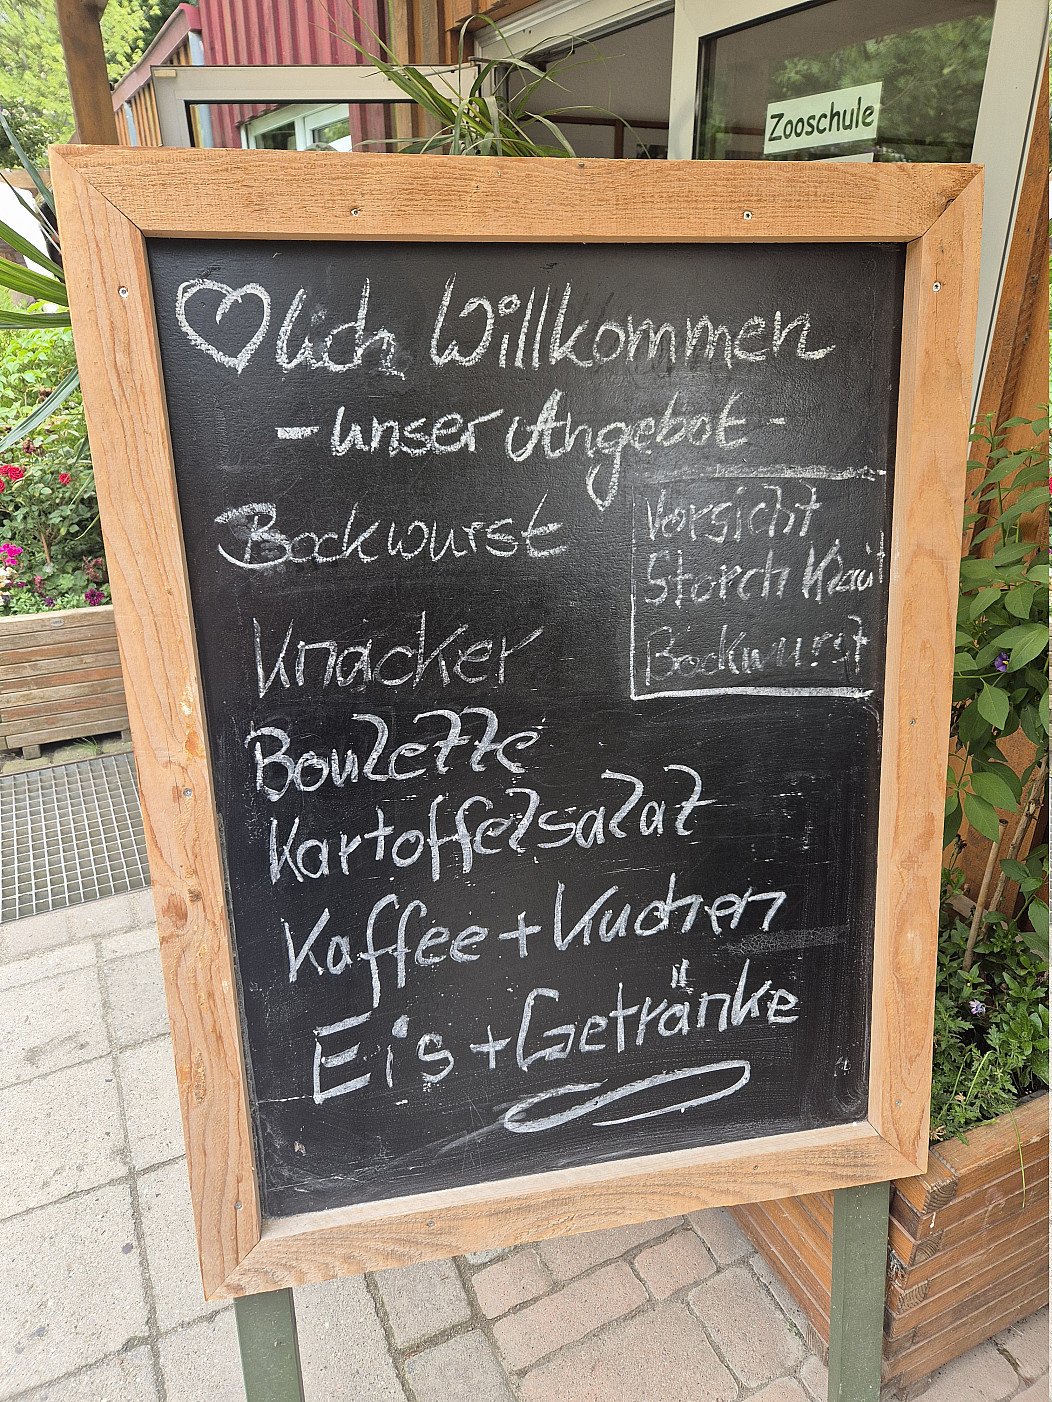 Zooschule
♡lich Willkommen
- unser Angebot -
Bockwurst
Vorsicht
Storch Klaut
Bockwurst
Knacker
Boulette
Kartoffelsalat
Kaffee + Kuchen
Eis + Getränke